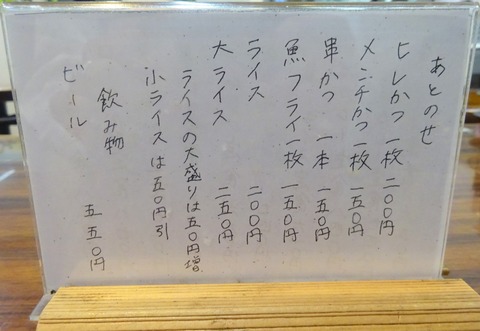 あとのせ
ヒレかつ 一枚 二〇〇円
メンチかつ 一枚 一五〇円
串かつ 一本 一五〇円
魚フライ 一枚 一五〇円
ライス 二〇〇円
大ライス 二五〇円
ライスの大盛りは五〇円増
小ライスは五〇円引
飲み物
ビール 五五〇円